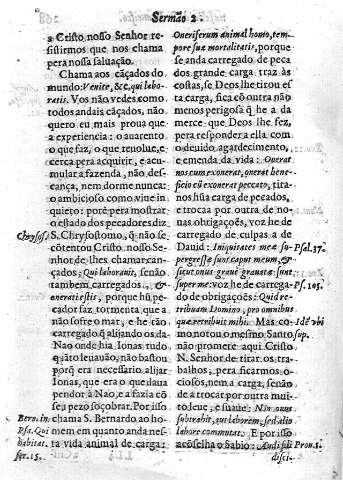 Sermão 2.
a Cristo nosso Senhor re-
sistirmos que nos chama
pera nossa saluação.
Chama aos cãçados do
mundo: Venite, &c, qui labo-
ratis. Vos não vedes como
todos andais cãçados, não
quero eu mais proua que
a experiencia: o auarento
o que faz, o que reuolue, e
cerca pera acquirir, e acu-
mular a fazenda, não des-
cança, nem dorme nunca:
o ambicioso como viue in-
quieto: porè pera mostrar
o estado dos peccadores diz
Chrysos. S. Chrysostomo, q̃ não se
cõtentou Cristo nosso Se-
nhor de lhes chamar can-
çados; Qui laboratis, senão
tambem carregados, &
onerati estis, porque hũ pe-
cador faz tormenta que a
não sofre o mar, e he tão
carregado q̃ alijando os da
Nao onde hia Ionas tudo
quãto leuauão, não bastou
porq̃ era necessario alijar
Ionas, que era o que daua
pendor à Nao, e a fazia cõ
seu pezo soçobrar. Por isso
Bern. in chama S. Bernardo ao ho-
Psa. Qui mem em quanto anda nes-
habitat. ta vida animal de carga:
ser. 15.
Oneriferum animal homo, tem-
pore suæ mortalitatis, porque
se anda carregado de peca-
dos grande carga traz às
costas, se Deos lhe tirou es-
ta carga, fica cõ outra não
menos perigosa q̃ he a da
merce que Deos lhe fez,
pera responder a ella com
o deuido agardecimento,
e emenda da vida: Onerat
nos cum exonerat, onerat bene-
ficio cũ exonerat peccato, tira-
nos hũa carga de pecados,
e troca por outra de no-
uas obrigaçoẽs, voz he de
carregado de culpas a de
Dauid: Iniquitates meæ su- Psal. 37.
pergressæ sunt caput meum, &
sicut onus graue grauatæ sunt
super me: voz he de carrega- Ps. 105.
do de obrigaçoẽs: Quid re-
tribuam Domino, pro omnibus
quæ retribuit mihi. Mas co- Idẽ vbi
mo notou o mesmo Santo sup.
não promete aqui Cristo
N. Senhor de tirar os tra-
balhos, pera ficarmos o-
ciosos, nem a carga, senão
de a trocar por outra mui-
to leue, e suaue: Non onus
subtrahit, aut laborem, sed alio
labore commutat. E por isso
acõselha o Sabio: Audi fili Prou. 1.
disci-